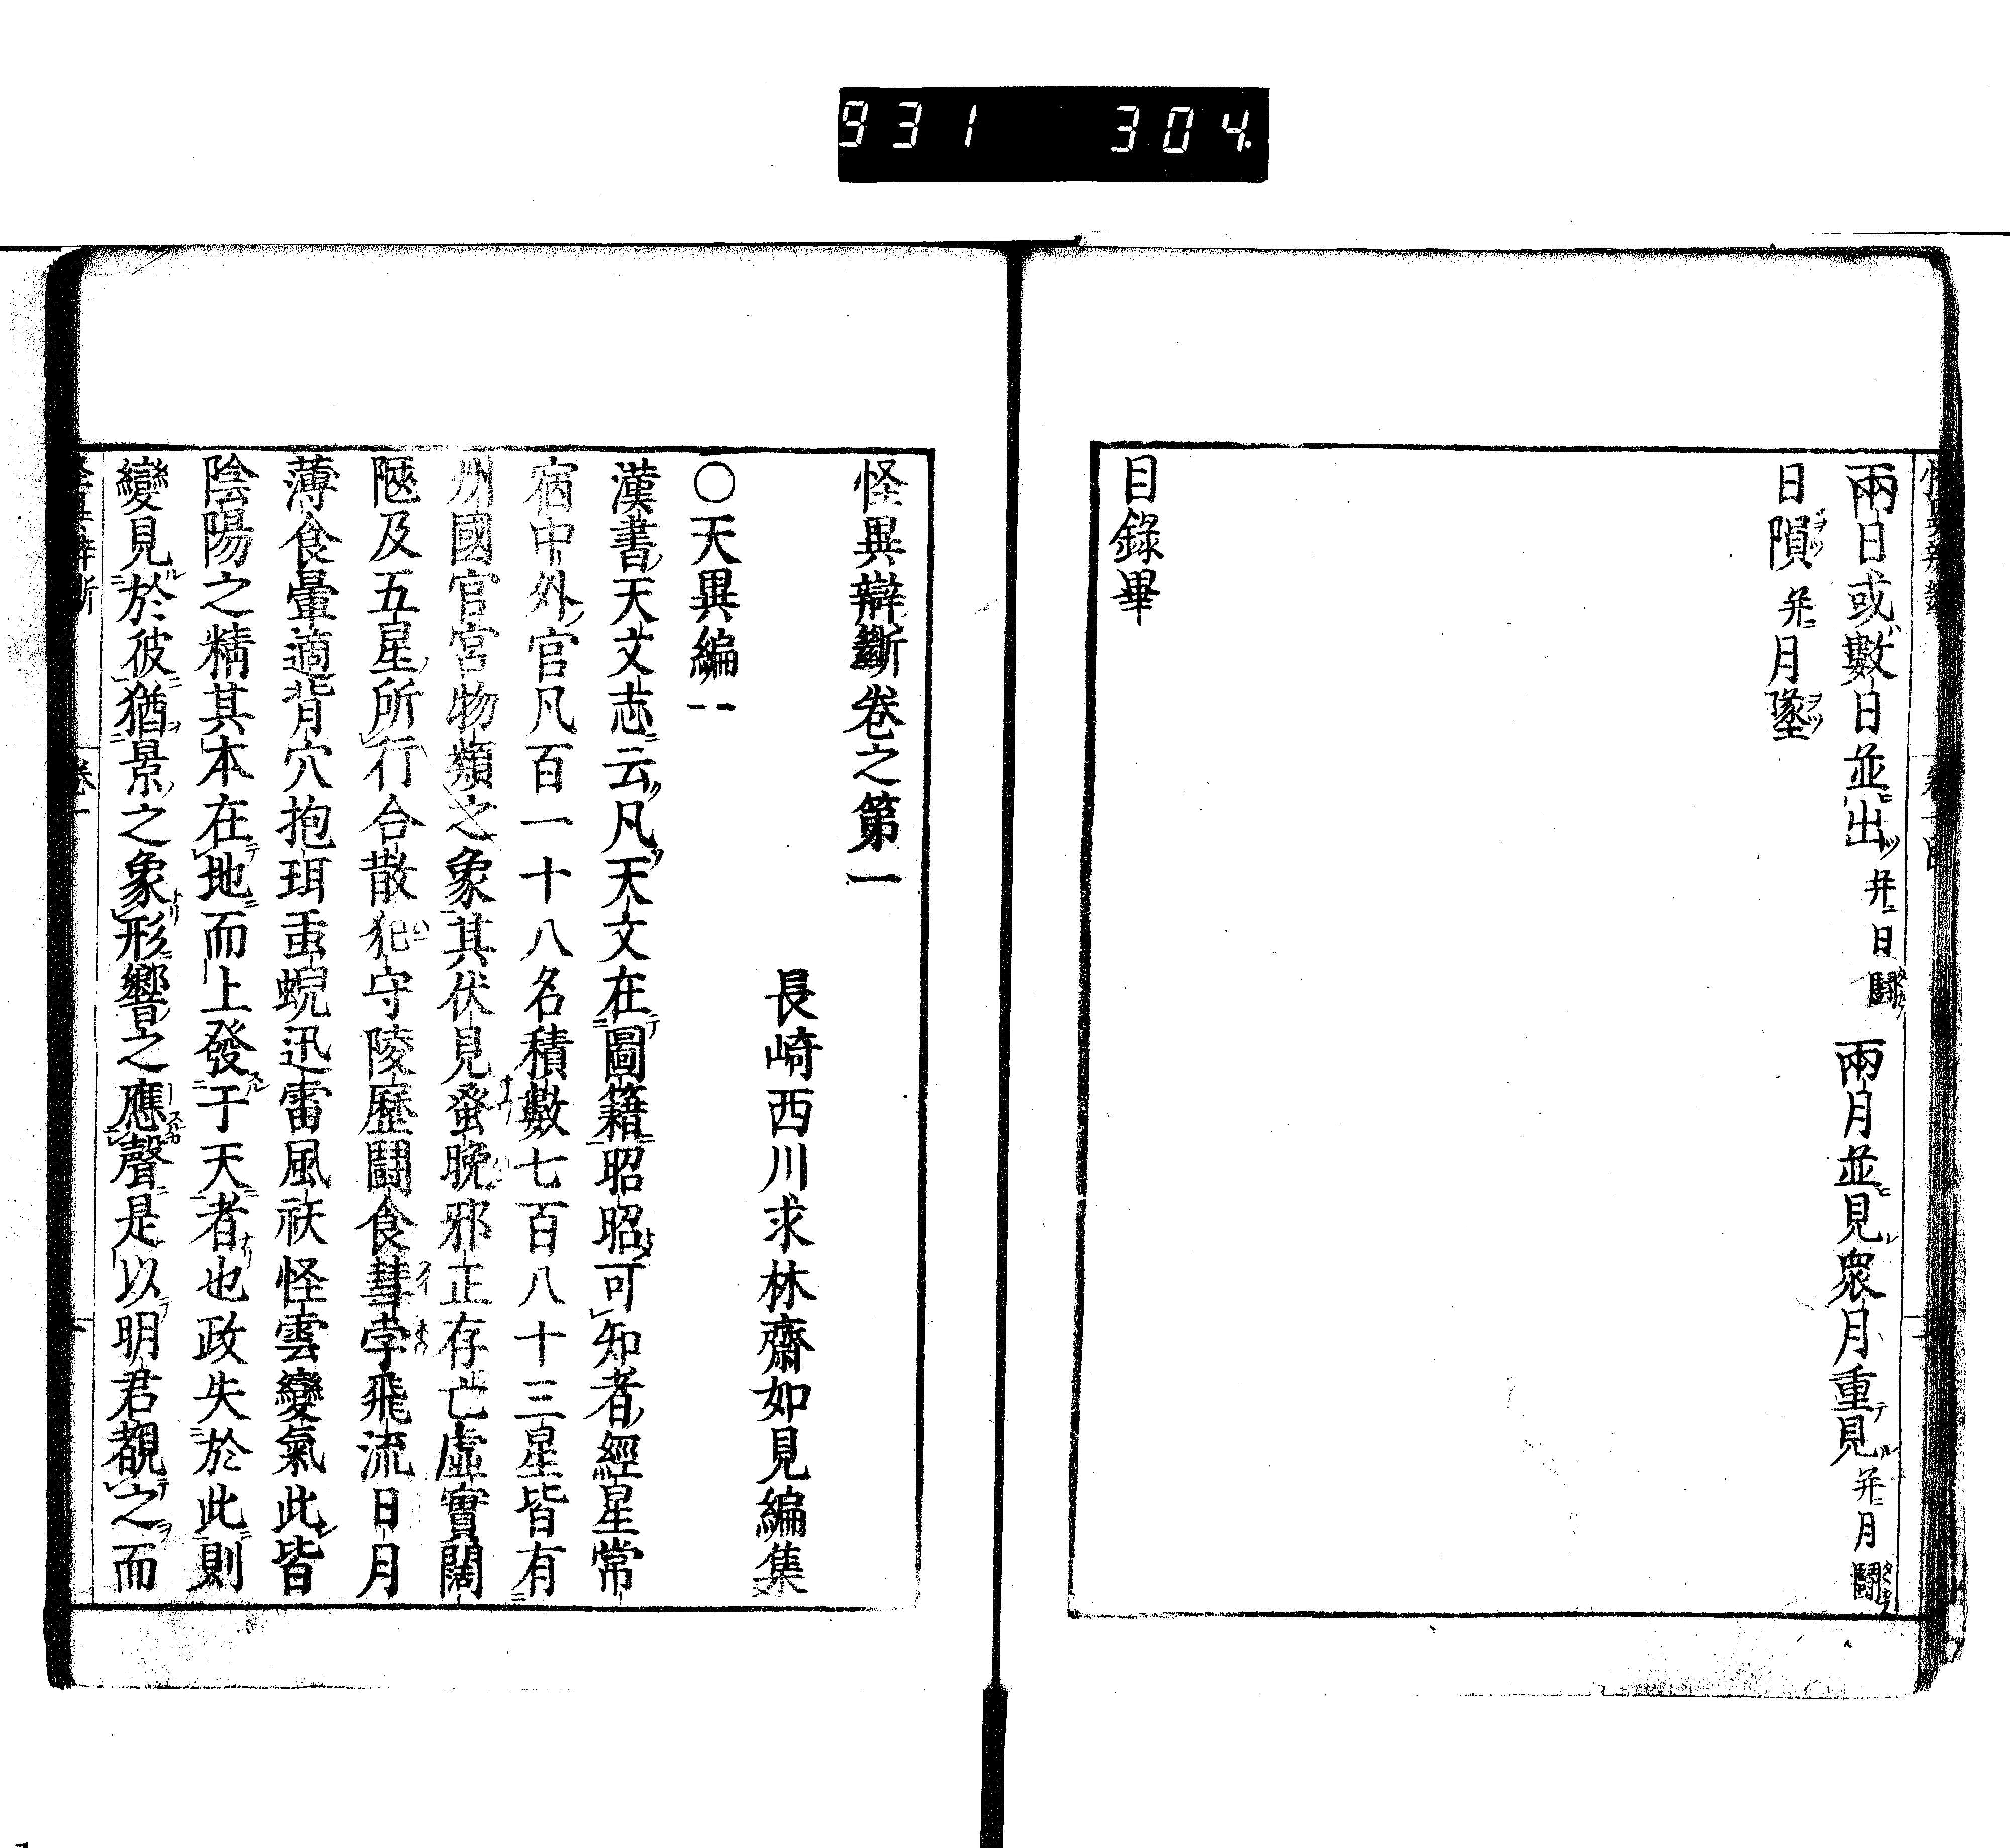 931 304
兩日或數日並出 并ニ日鬪 兩月並ニ見衆月重テ見 并ニ月鬪
日隕 并ニ月墜
目錄畢
怪異辯斷卷之第一
長崎西川求林齋如見編集
○天異編一
漢書天文志云凡天文在圖籍昭昭可知者經星常
宿中外官凡百一十八名積數七百八十三星皆有
州國官宮物類之象其伏見蚤晚邪正存亡虛實闊
陿及五星所行合散犯守陵歷鬪食彗孛飛流日月
薄食暈適背穴抱珥䖝蜺迅雷風祅怪雲變氣此皆
陰陽之精其本在地而上發于天者也政失於此則
變見於彼猶景之象形響之應聲是以明君覩之而